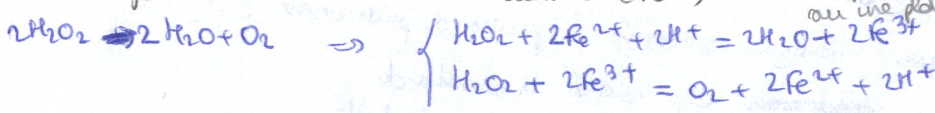 2H2O2 → 2H2O + O2 ⇒ { H2O2 + 2Fe2+ + 2H+ = 2H2O + 2Fe3+
H2O2 + 2Fe3+ = O2 + 2Fe2+ + 2H+